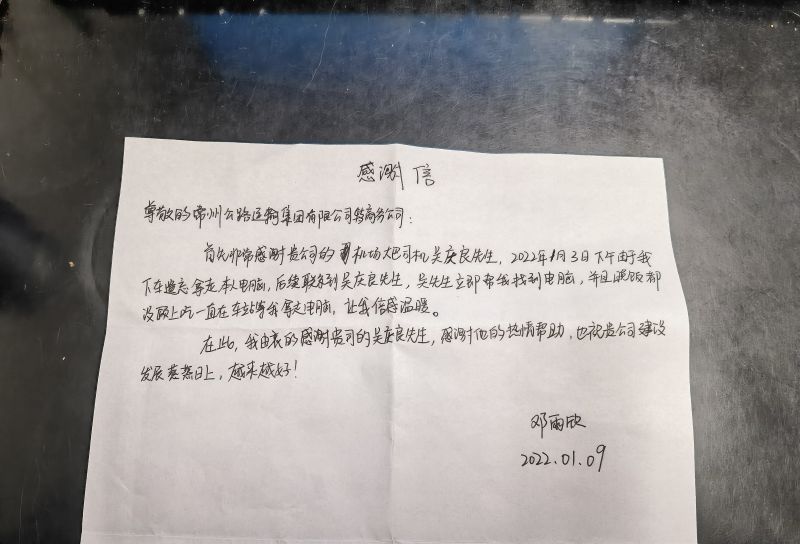 感谢信
尊敬的常州公路运输集团有限公司商务公司:
首先非常感谢贵公司的机场大巴司机吴庆良先生,2022年1月3日下午由于我
下车遗忘拿走本人电脑,后续联系到吴庆良先生,吴先生立即帮我找到电脑,并且晚饭都
没顾上吃一直在车站等我拿走电脑,让我倍感温暖。
在此,我由衷的感谢贵司的吴庆良先生,感谢他的热情帮助,也祝贵公司建设
发展蒸蒸日上,越来越好!
邓雨欣
2022.01.09